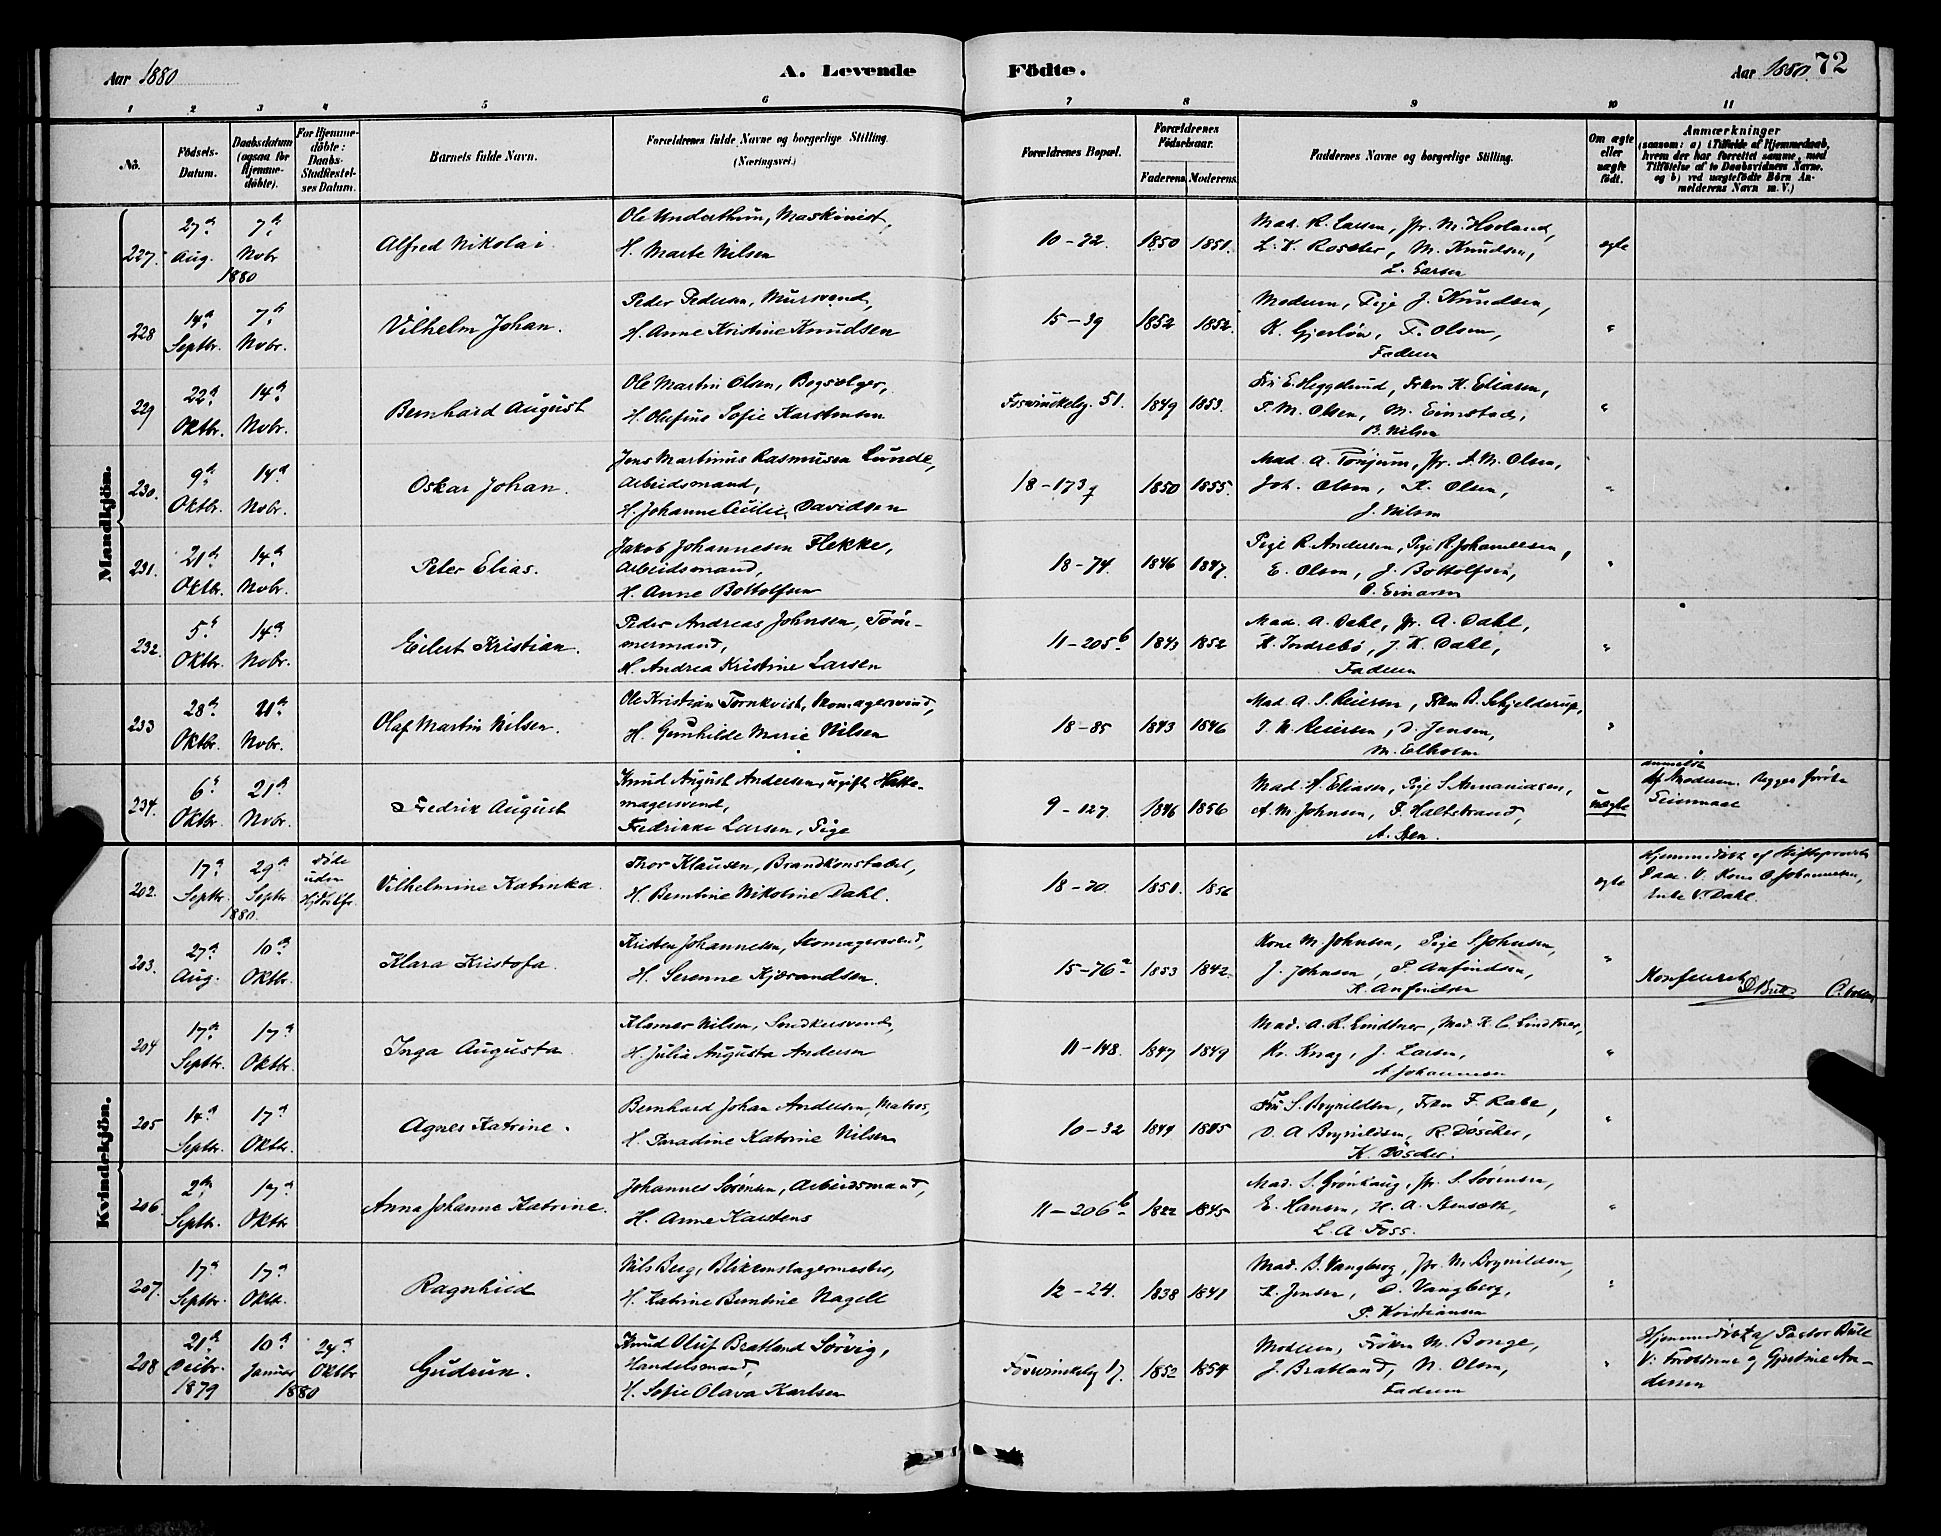 Aar 1880
A. Levende Födte.
Aar 1880. 72
1 2 3 4 5 6 7 8 9 10 11
No.
Födsels-Datum.
Daabsdatum (ogsaa for Hjemme-döbte).
For Hjemme-döbte: Daabs-Stadfestel-ses Datum.
Barnets fulde Navn.
Forældrenes fulde Navne og borgerlige Stilling. (Næringsvei.)
Forældrenes Bopæl.
Forældrenes Födselsaar.
Faderens. Moderens.
Faddernes Navne og borgerlige Stilling.
Om ægte eller uægte födt.
Anmærkninger
(saasom: a) i Tilfælde af Hjemmedaab, hvem der har forrettet samme, med Tilföielse af to Daabsvidners Navne, og b) ved uægtefödte Börn An-melderens Navn m. V.)
Mandkjön.
227. 27de Aug. 7de Nobr 1880
Alfred Nikolai
Ole Underthun, Maskinist,
H. Marte Nilsen
10-72. 1850 1851.
Mad. R. Larsen, Jfr. M. Hovland,
L. K. Roseter, M. Knudsen,
L. Larsen
ægte
228 14de Septbr. 7de Nobr.
Vilhelm Johan.
Peder Pedersen, Mursvend,
H. Anne Kristine Knudsen
15-39 1852 1852.
Moderen, Pige J. Knudsen,
K. Gjerløv, F. Olsen,
Faderen
"
229 22de Oktbr. 14de Nobr.
Bernhard August
Ole Martin Olsen, Bogsælger,
H. Olufine Sofie Karstensen
51. 1849 1853.
Fru E. Heggelund, Frkn K. Eliasen,
P. M. Olsen, M. Eimstad,
B. Nilsen
"
230. 9de Oktbr. 14de Nobr.
Oskar Johan.
Jens Martinus Rasmusen Lunde,
Arbeidsmand,
H. Johanne Davidsen
18-173 1850 1855.
Mad. A. Tonjum, Jfr. A. M. Olsen,
Joh. Olsen, K. Olsen,
J. Nilsen
"
231. 21de Oktbr. 14de Nobr.
Peter Elias.
Jakob Johannesen Flekke,
Arbeidsmand,
H. Anne Bottolfsen
18-74. 1846 1847.
Pige R. Andersen, Pige R. Johannesen,
E. Olsen, J. Bottolfsen,
O. Einarsen
"
232. 5te Oktbr. 14de Nobr.
Eilert Kristian.
Peder Andreas Johnsen, Töm-
mermand,
H. Andrea Kristine Larsen
11-205b 1843 1852
Mad. A. Dahl, Jfr. A. Dahl,
K. Indrebö, J. K. Dahl,
Faderen
"
233 28de Oktbr. 21de Nobr.
Olaf Martin Nilsen.
Ole Kristian Tornkvist, Skomagersvend,
H. Gunhilde Marie Nilsen
18-85 1843 1846
Mad. A. S. Reiersen, Frkn B. Schjelderup,
T. N. Reiersen, D. Jensen,
M. Elholm
"
234. 6te Oktbr. 21de Nobr.
Fredrik August
Knud August Andersen, ugift Hatte-
magersvend,
Fredrikke Larsen, Pige
9-127. 1846 1856
Mad. H. Eliasen, Pige S. Annaniasen,
A. M. Johnsen, F. Haltstrand,
A. Sten.
uægte
anmeldt
af Moderen. Begges förste
Leiermaal
Kvindekjön.
202. 17de Septbr. 29de Septbr 1880.
döde uden
Vilhelmine Katinka.
Thor Klausen, Brandkonstabel,
H. Berntine Nikoline Dahl.
18-70 1850. 1856
ægte
Hjemmedöbt af Stiftsprovst
Daae. V. Kone O Johannesen,
Enke V. Dahl.
203. 27de Aug. 10de Oktbr.
Klara Kristofa.
Kristen Johannesen, Skomagersvend,
H. Serenne Kjærandsen.
15-76a 1853 1842.
Kone M. Johnsen, Pige S. Johnsen,
J. Johnsen, P. Anfindsen,
K. Anfindsen
"
204 17de Septbr. 17de Oktbr.
Inga Augusta
Klamer Nilsen, Snedkersvend,
H. Julia Augusta Andersen
11-148. 1847 1849
Mad. A. R. Lindtner, Mad. K. C. Lindtner,
Kr. Krag, J. Larsen,
A Johannesen
"
205 14de Septbr. 17de Oktbr.
Agnes Katrine.
Bernhard Johan Andersen, Matros,
H. Paradine Katrine Nilsen
10-32 1849 1845
Fru S. Brynildsen, Frkn F. Rabe,
D. A Brynildsen, R. Döscher,
K. Döscher.
"
206 2den Septbr. 17de Oktbr
Anna Johanne Katrine.
Johannes Sörensen, Arbeidsmand,
H. Anne Karstens
11-206b 1822 1845
Mad. S. Grönhaug, Jfr. S. Sörensen,
E. Hansen, H. A. Stensæth,
L. A. Foss.
"
207. 17de Septbr. 17de Oktb.
Ragnhild
Nils Berg, Blikkenslagermester,
H. Katrine Berntine Nagell
12-24. 1838 1841
Mad. B. Vangberg, Jfr. M. Brynildsen,
K. Jensen, O. Vangberg,
P. Kristiansen
"
208 21de Decbr. 1879 10de Januar 1880 24de Oktbr
Gudrun.
Knud Oluf Bratland Sörvig,
Handelsmand,
H. Sofie Olava Karlsen
17. 1852 1854
Moderen, Frökn M. Bonge,
J. Bratland, N. Olsen,
Faderen
"
Hjemmedöbt af Pastor Bull
V: Forældrene og Gjertine An-
dersen